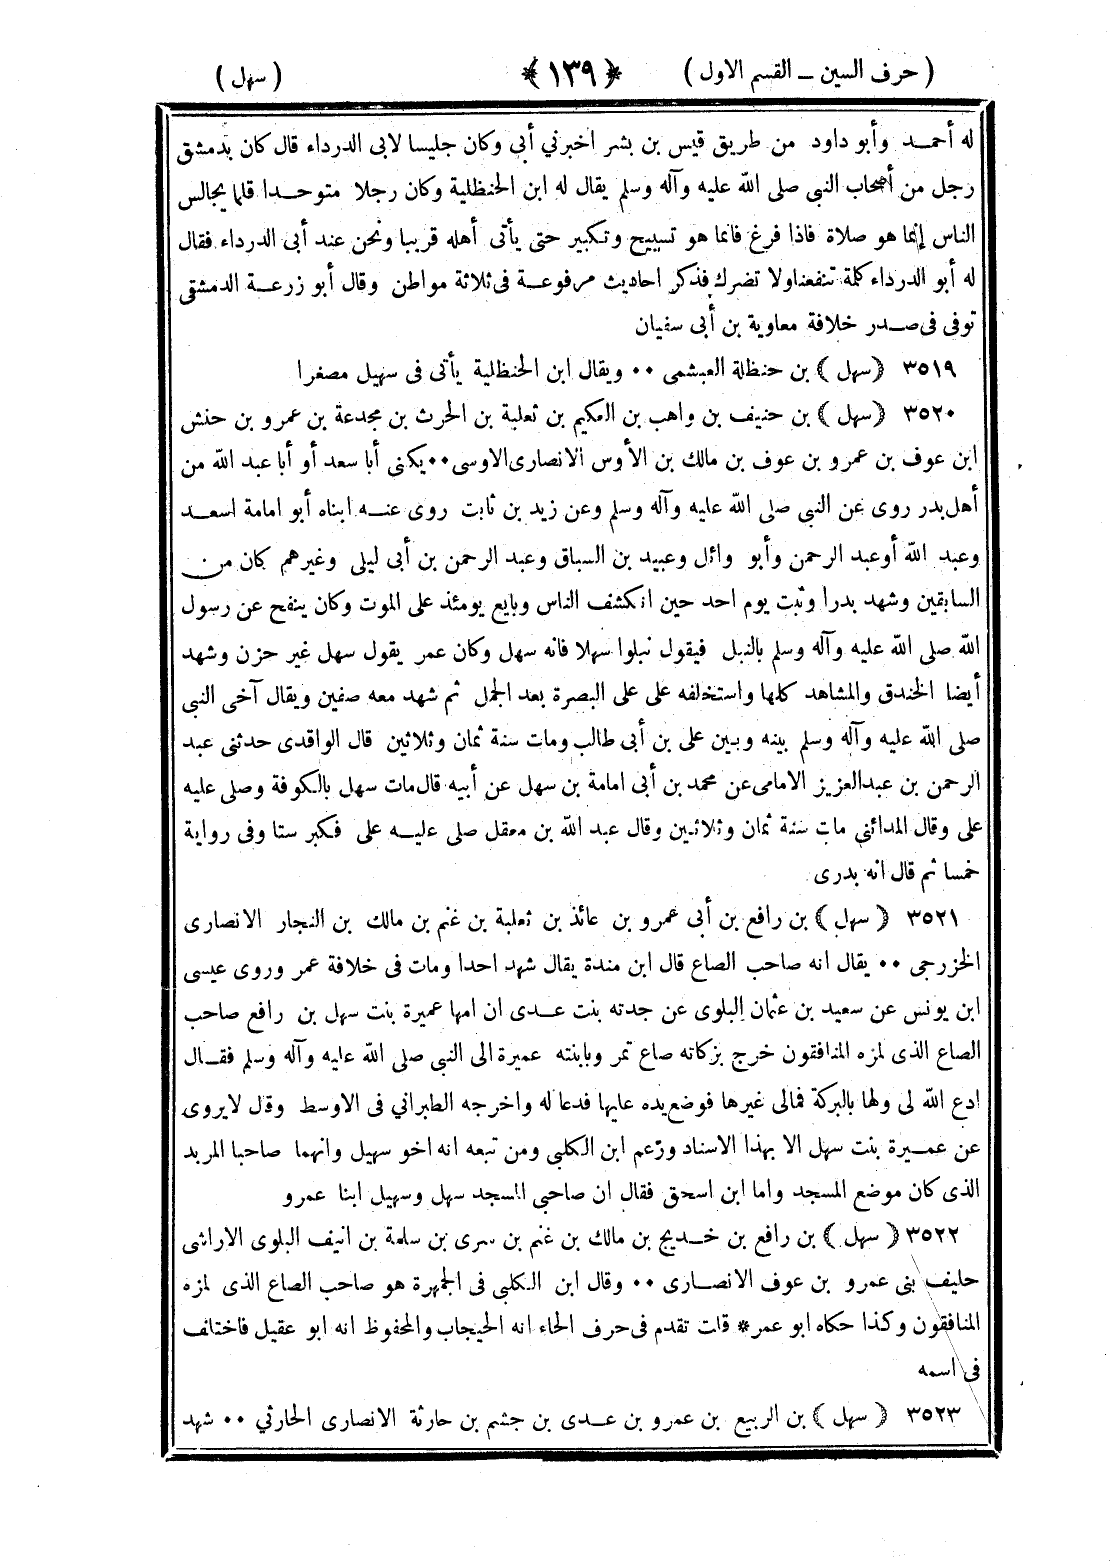 ( حرف السين ــ القسم الاول ) ﴿ ١٣٩ ﴾ ( سهل )
له أحمد وأبو داود من طريق قيس بن بشر اخبرني أبى وكان جليسا لابى الدرداء قال كان بدمشق
رجل من أصحاب النبى صلى الله عليه وآله وسلم يقال له ابن الحنظلية وكان رجلا متوحدا قلما يجالس
الناس إنما هو صلاة فاذا فرغ فانما هو تسبيح وتكبير حتى يأتى أهله قريبا ونحن عند أبى الدرداء فقال
له أبو الدرداء كلمة تنفعنا ولا تضرك فذكر احاديث مرفوعة فى ثلاثة مواطن وقال أبو زرعة الدمشقى
توفى فى صدر خلافة معاوية بن أبى سفيان
٣٥١٩ ( سهل ) بن حنظلة العبشمى ٠٠ ويقال ابن الحنظلية يأتى فى سهيل مصغرا
٣٥٢٠ ( سهل ) بن حنيف بن واهب بن العكيم بن ثعلبة بن الحرث بن مجدعة بن عمرو بن حنش
ابن عوف بن عمرو بن عوف بن مالك بن الأوس الانصارى الاوسى ٠٠ يكنى أبا سعد أو أبا عبد الله من
أهل بدر روى عن النبى صلى الله عليه وآله وسلم وعن زيد بن ثابت روى عنه ابناه أبو امامة اسعد
وعبد الله أو عبد الرحمن وأبو وائل وعبيد بن السباق وعبد الرحمن بن أبى ليلى وغيرهم كان من
السابقين وشهد بدرا وثبت يوم احد حين انكشف الناس وبايع يومئذ على الموت وكان ينفح عن رسول
الله صلى الله عليه وآله وسلم بالنبل فيقول نبلوا سهلا فانه سهل وكان عمر يقول سهل غير حزن وشهد
أيضا الخندق والمشاهد كلها واستخلفه على على البصرة بعد الجمل ثم شهد معه صفين ويقال آخى النبى
صلى الله عليه وآله وسلم بينه وبين على بن أبى طالب ومات سنة ثمان وثلاثين قال الواقدى حدثنى عبد
الرحمن بن عبدالعزيز الامامى عن محمد بن أبى امامة بن سهل عن أبيه قال مات سهل بالكوفة وصلى عليه
على وقال المدائنى مات سنة ثمان وثلاثين وقال عبد الله بن معقل صلى عليه على فكبر ستا وفى رواية
خمسا ثم قال انه بدرى
٣٥٢١ ( سهل ) بن رافع بن أبى عمرو بن عائذ بن ثعلبة بن غنم بن مالك بن النجار الانصارى
الخزرجى ٠٠ يقال انه صاحب الصاع قال ابن مندة يقال شهد احدا ومات فى خلافة عمر وروى عيسى
ابن يونس عن سعيد بن عثمان البلوى عن جدته بنت عدى ان امها عميرة بنت سهل بن رافع صاحب
الصاع الذى لمزه المنافقون خرج بزكاته صاع تمر وبابنته عميرة الى النبى صلى الله عليه وآله وسلم فقال
ادع الله لى ولها بالبركة فمالى غيرها فوضع يده عليها فدعا له واخرجه الطبرانى فى الاوسط وقال لايروى
عن عميرة بنت سهل الا بهذا الاسناد وزعم ابن الكلبى ومن تبعه انه اخو سهيل وانهما صاحبا المربد
الذى كان موضع المسجد واما ابن اسحق فقال ان صاحبى المسجد سهل وسهيل ابنا عمرو
٣٥٢٢ ( سهل ) بن رافع بن خديج بن مالك بن غنم بن سرى بن سلمة بن انيف البلوى الاراشى
حليف بنى عمرو بن عوف الانصارى ٠٠ وقال ابن الكلبى فى الجمهرة هو صاحب الصاع الذى لمزه
المنافقون وكذا حكاه ابو عمر * قلت تقدم فى حرف الحاء انه الحيجاب والمحفوظ انه ابو عقيل فاختلف
فى اسمه
٣٥٢٣ ( سهل ) بن الربيع بن عمرو بن عدى بن جشم بن حارثة الانصارى الحارثي ٠٠ شهد